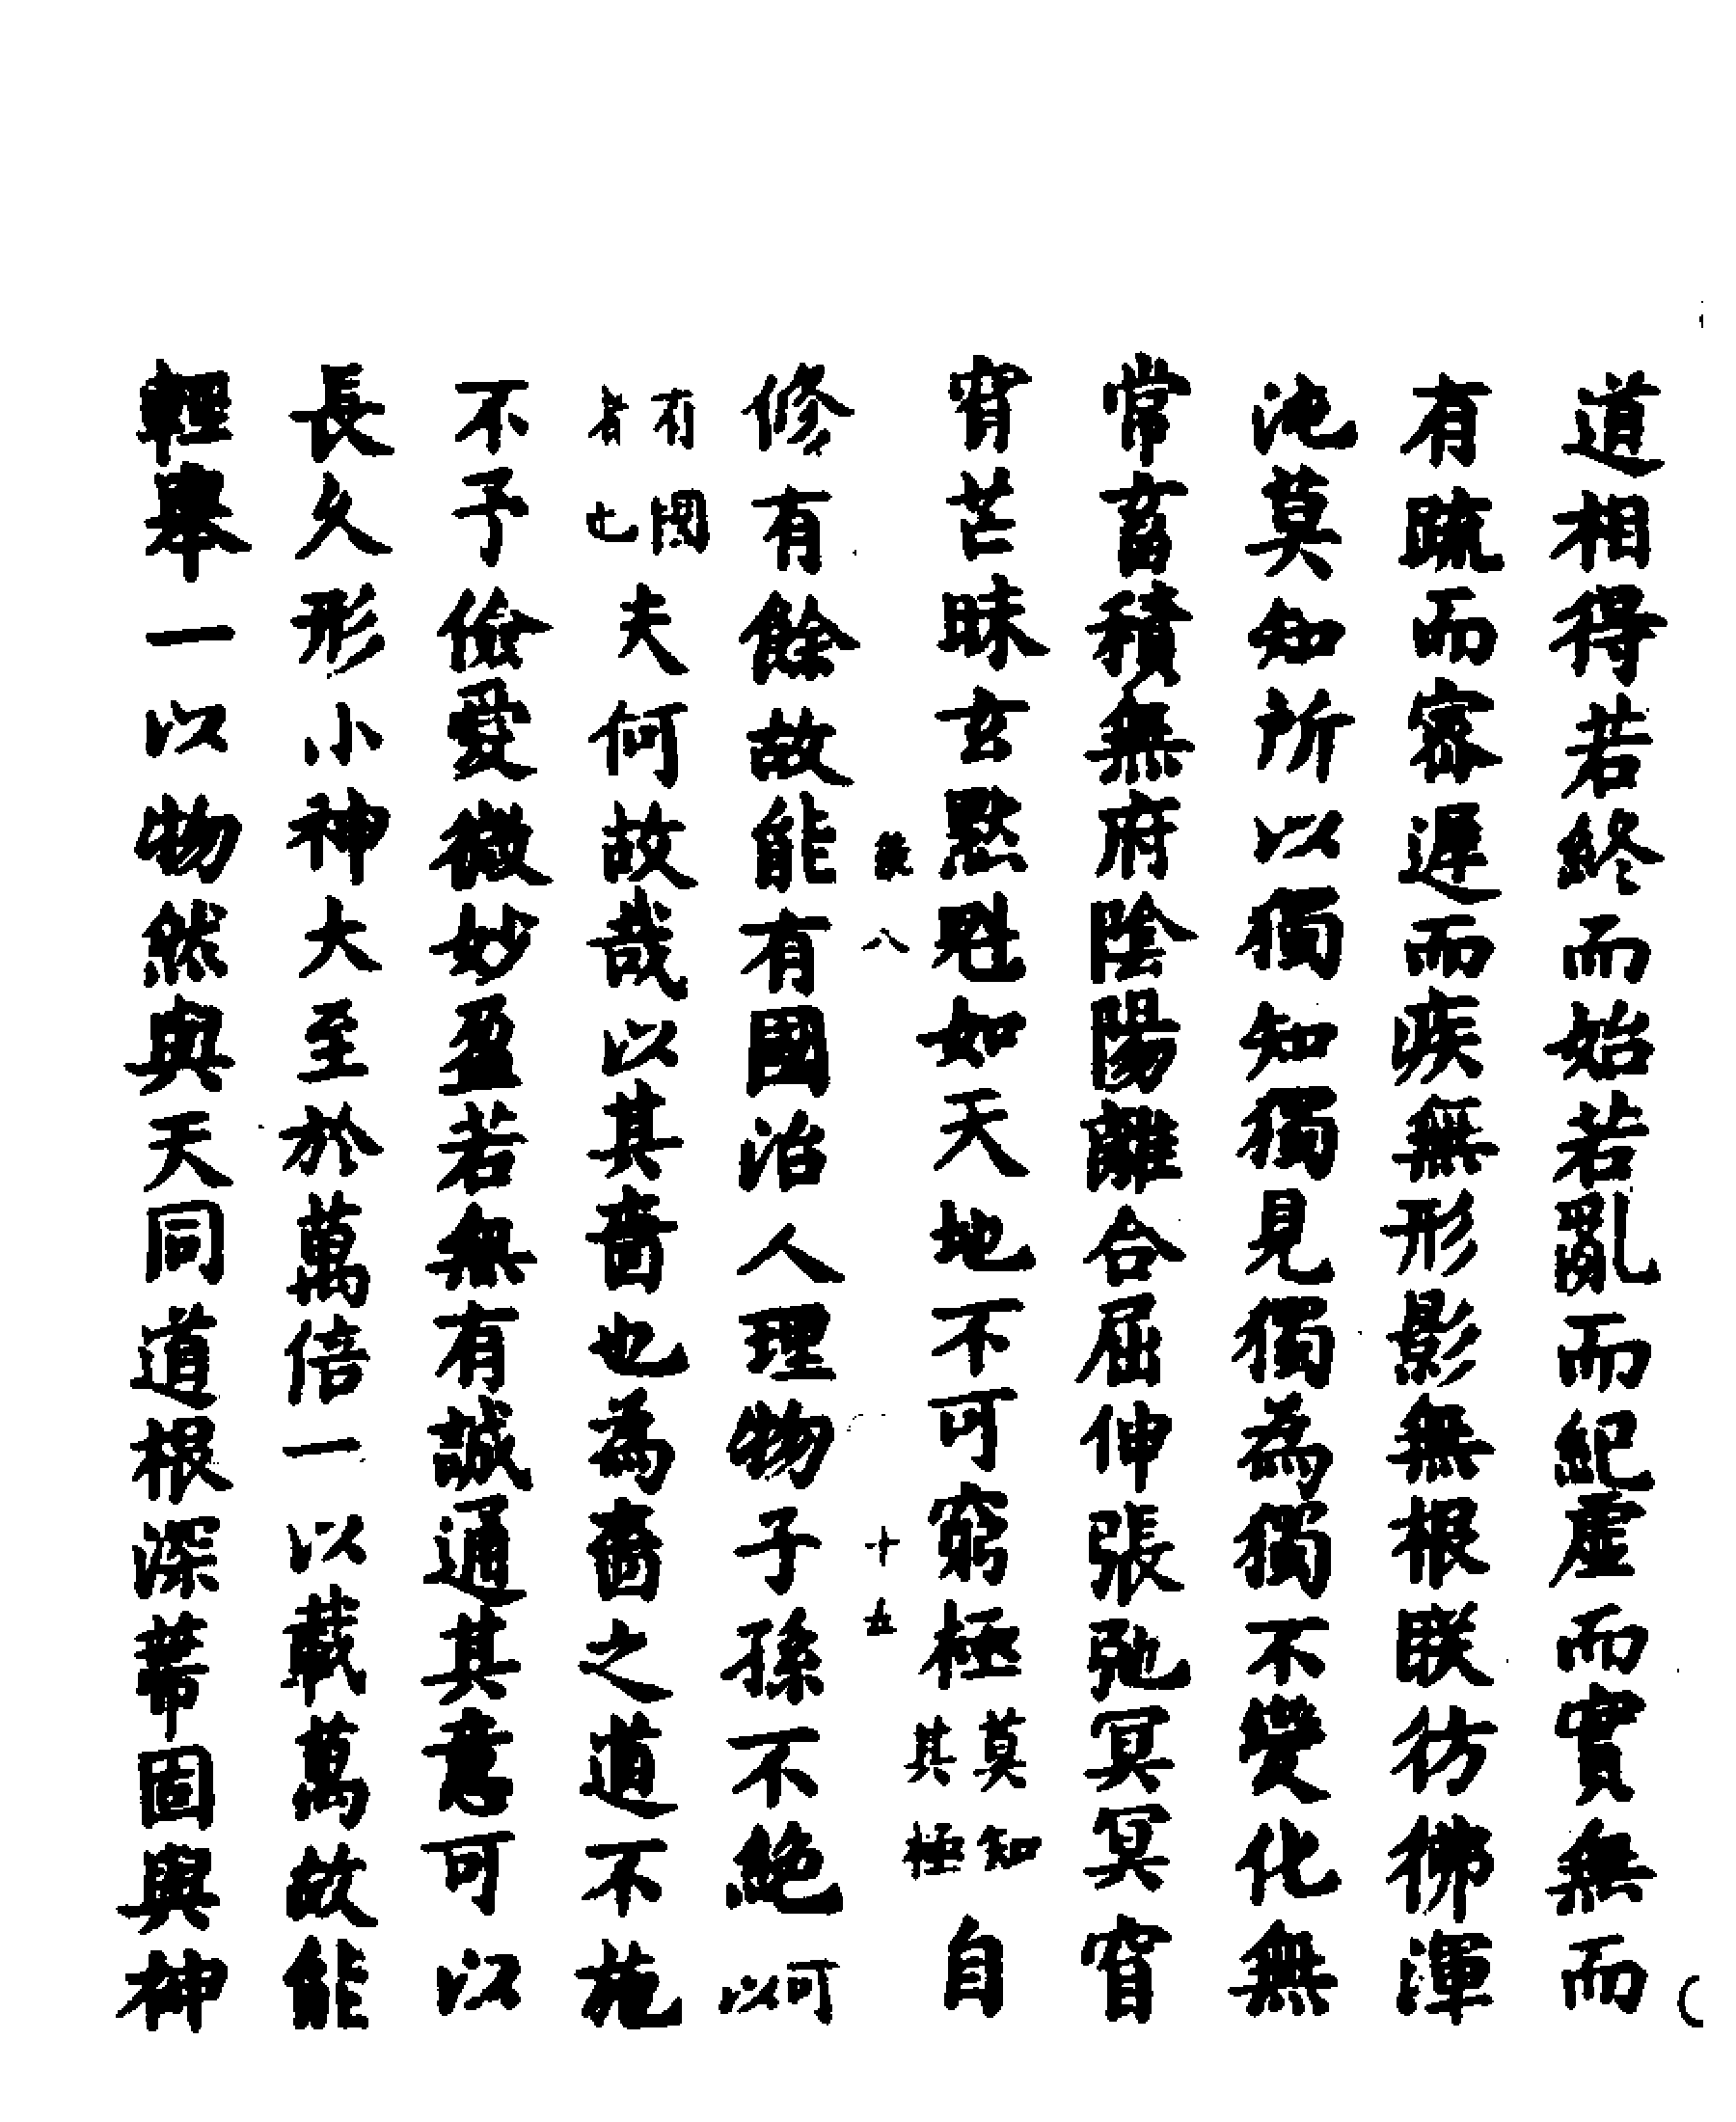 道相得若終而始若亂而紀虛而實無而
有疏而密遲而疾無形影無根朕彷彿渾
沌莫知所以獨知獨見獨為獨不變化無
常畜積無府陰陽離合屈伸張弛冥冥窅
窅芒昧玄默魁如天地不可窮極莫知其極自
後八 十五
修有餘故能有國治人理物子孫不絕可以
有國者也夫何故哉以其嗇也為嗇之道不施
不予儉愛微妙盈若無有誠通其意可以
長久形小神大至於萬倍一以載萬故能
輕舉一以物然與天同道根深蔕固與神